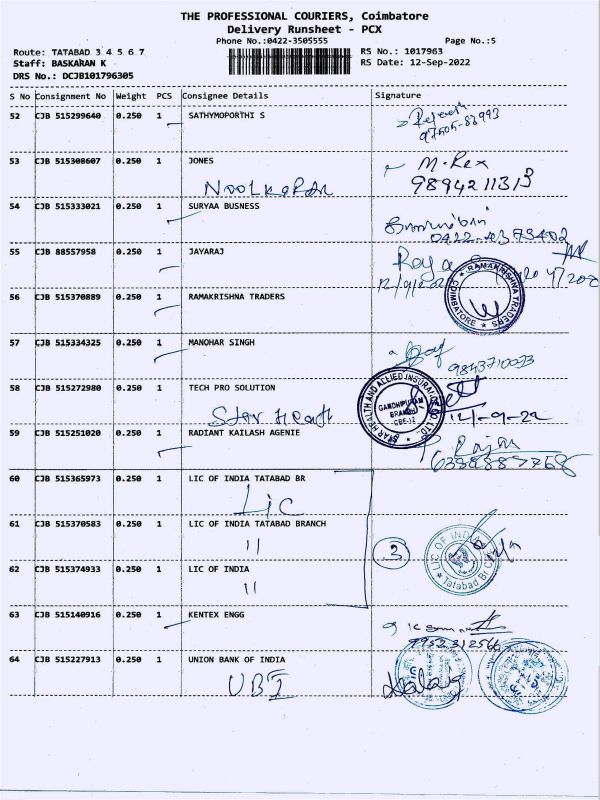 THE PROFESSIONAL COURIERS, Coimbatore
Delivery Runsheet - PCX
Phone No.:0422-3505555 Page No.:5
Route: TATABAD 3 4 5 6 7 RS No.: 1017963
Staff: BASKARAN K RS Date: 12-Sep-2022
DRS No.: DCJB101796305
S No Consignment No Weight PCS Consignee Details Signature
52 CJB 515299640 0.250 1 SATHYMOPORTHI S
53 CJB 515308607 0.250 1 JONES M. Rex
9894211313
54 CJB 515333021 0.250 1 SURYAA BUSNESS
55 CJB 88557958 0.250 1 JAYARAJ
12/9/
56 CJB 515370889 0.250 1 RAMAKRISHNA TRADERS
RAMAKRISHNA TRADERS
COIMBATORE
57 CJB 515334325 0.250 1 MANOHAR SINGH
9843710033
58 CJB 515272980 0.250 1 TECH PRO SOLUTION
STAR HEALTH AND ALLIED INSURANCE CO LTD
GANDHIPURAM
BRANCH
CBE-12
Star Health 12/-9-22
59 CJB 515251020 0.250 1 RADIANT KAILASH AGENIE Rajan
60 CJB 515365973 0.250 1 LIC OF INDIA TATABAD BR
LIC
61 CJB 515370583 0.250 1 LIC OF INDIA TATABAD BRANCH
11 3
LIC OF INDIA
Tatabad Br
62 CJB 515374933 0.250 1 LIC OF INDIA
11
63 CJB 515140916 0.250 1 KENTEX ENGG
9952312566
64 CJB 515227913 0.250 1 UNION BANK OF INDIA
UBI